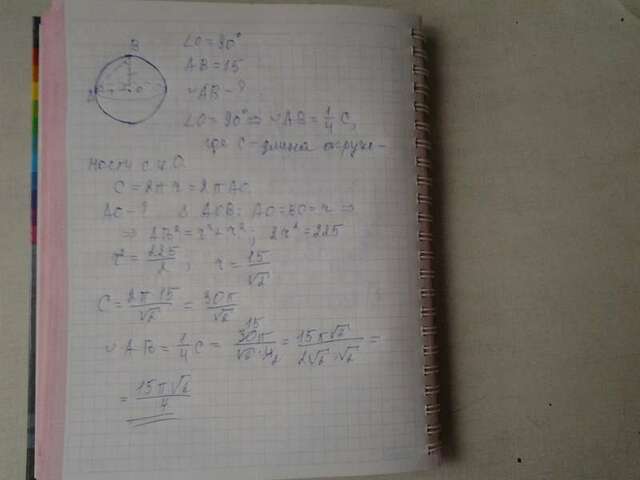 B
A
O
∠O = 90°
AB = 15
◡AB - ?
∠O = 90° ⇒ ◡AB = 1/4 C,
где C - длина окруж-
ности с ц. O.
C = 2πr = 2πAO
AO - ? Δ AOB: AO = BO = r ⇒
⇒ AB² = r² + r²; 2r² = 225
r² = 225/2; r = 15/√2
C = 2π·15/√2 = 30π/√2
◡AB = 1/4 C = 15 30π/√2·4 2 = 15π√2/2√2·√2 =
= 15π√2/4